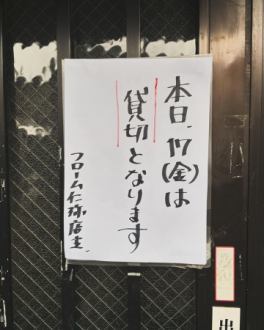 本日、17(金)は
貸切となります
フローム仁弥店主、
出